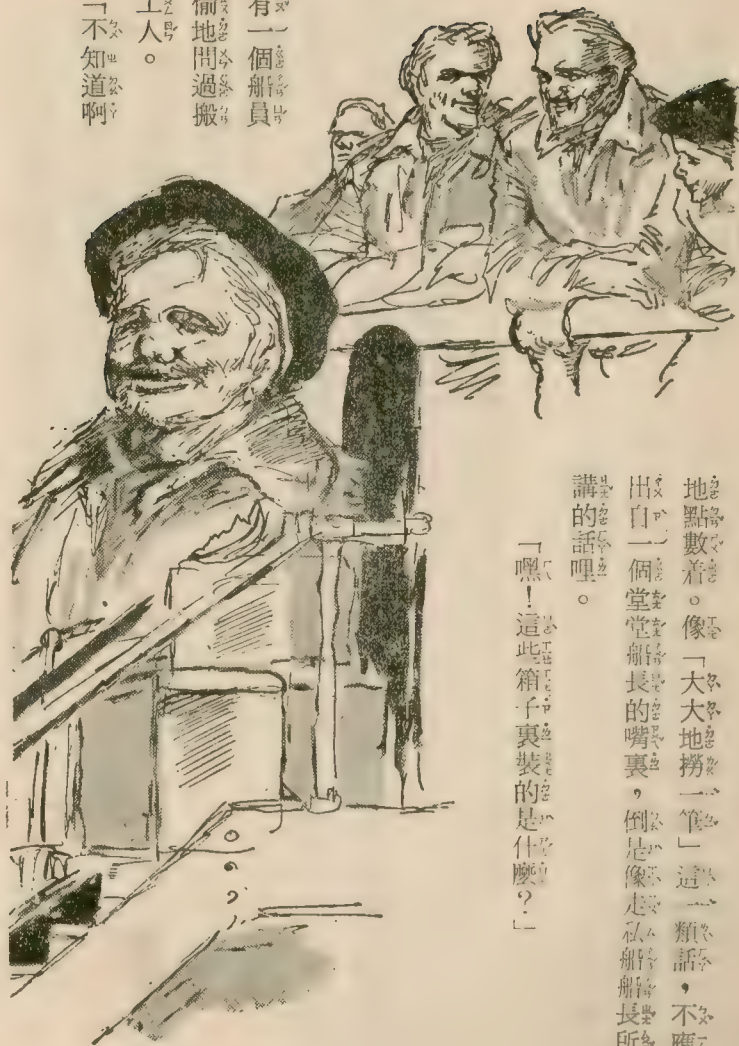 地點數着。像「大大地撈一筆」這一類話，不應
出自一個堂堂船長的嘴裏，倒是像走私船船長所
講的話哩。
「嘿！這些箱子裏裝的是什麼？」
有一個船員
偷地問過搬
工人。
「不知道啊